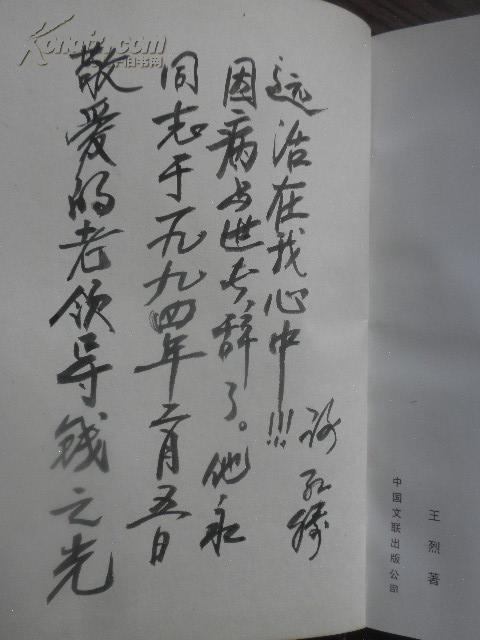 敬爱的老领导钱之光
同志于一九九四年二月五日
因病与世长辞了。他永
远活在我心中!!!
王烈著
中国文联出版公司